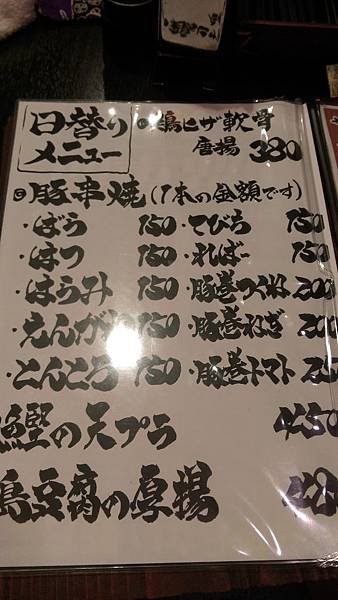 日替り
メニュー
鶏ヒザ軟骨
唐揚 380
豚串焼(1本の金額です)
・ばう 150
・はつ 150
・はらみ 150
・えんが 150
・とんとろ 150
・てびち 150
・ればー 150
・豚巻つくね 200
・豚巻ねぎ 200
・豚巻トマト
鰹の天プラ 450
島豆腐の厚揚